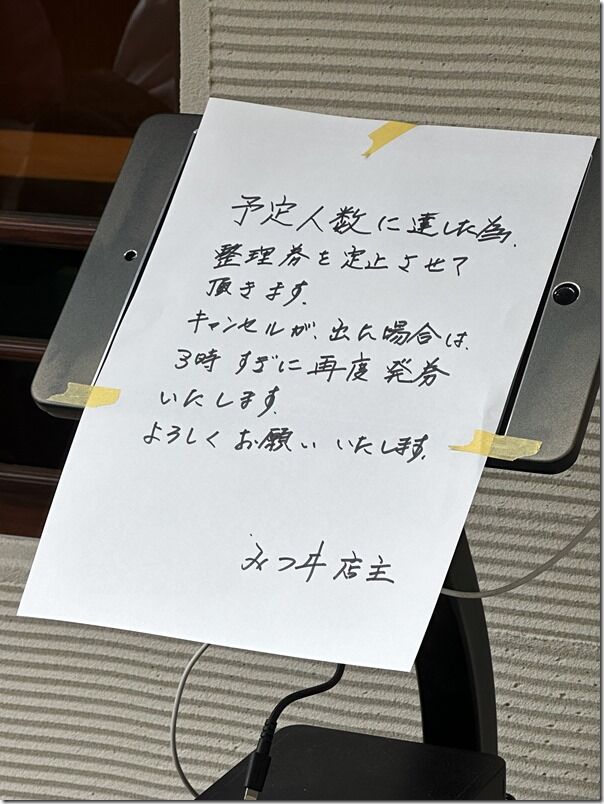 予定人数に達した為、
整理券を定止させて
頂きます。
キャンセルが、出た場合は、
3時すぎに再度発券
いたします。
よろしくお願いいたします。
みつ井店主